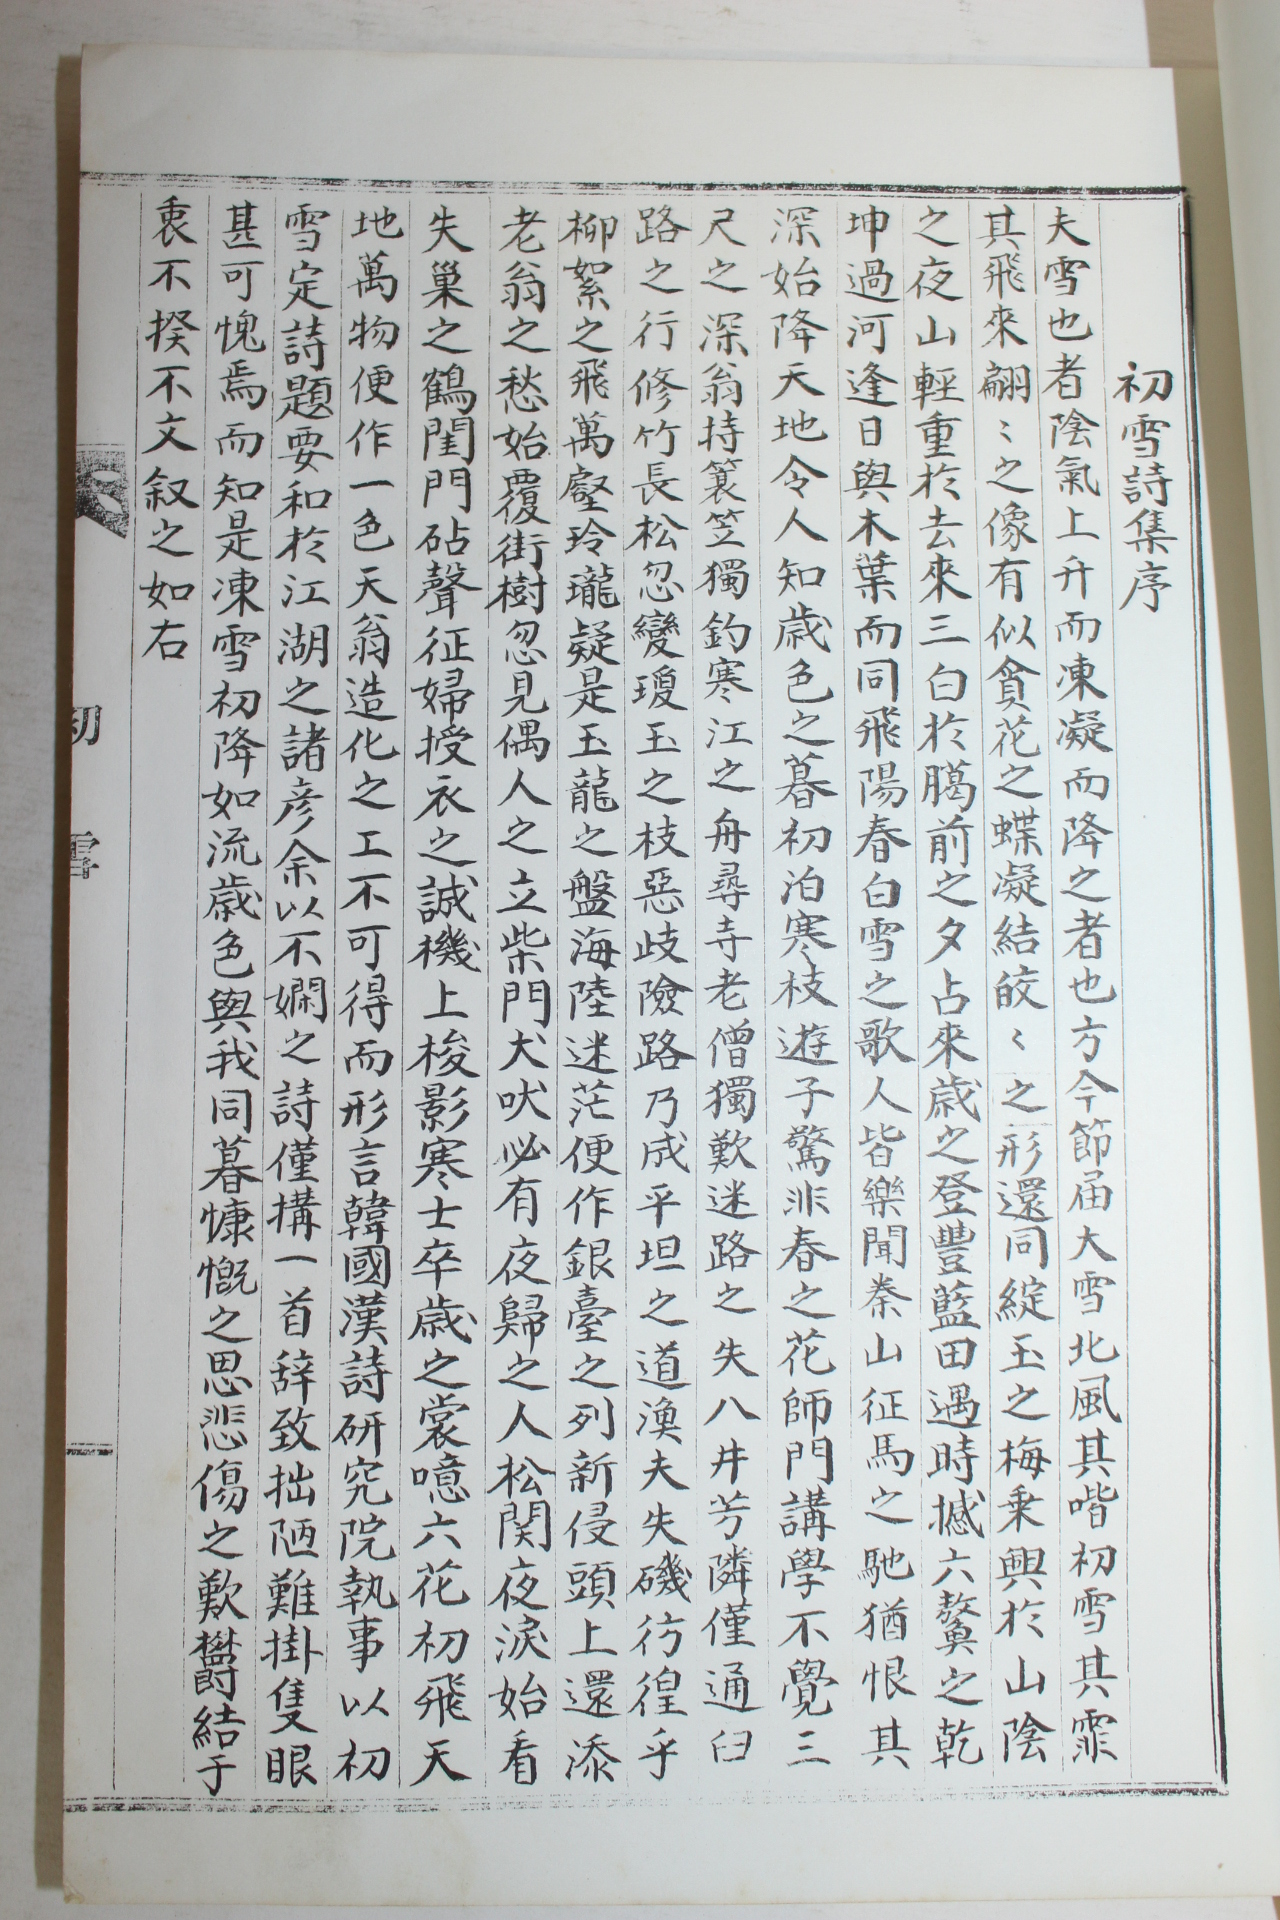 初雪詩集序
夫雪也者陰氣上升而凍凝而降之者也方今節届大雪北風其喈初雪其霏
其飛來翩〻之像有似貪花之蝶凝結皎〻之形還同綻玉之梅乗興於山陰
之夜山輕重於去來三白於臈前之夕占來歳之登豐藍田遇時撼六鰲之乾
坤過河逢日與木葉而同飛陽春白雪之歌人皆樂聞秦山征馬之馳猶恨其
深始降天地令人知歳色之暮初泊寒枝遊子驚非春之花師門講學不覺三
尺之深翁持簑笠獨釣寒江之舟尋寺老僧獨歎迷路之失八井芳隣僅通臼
路之行修竹長松忽變瓊玉之枝惡歧險路乃成平坦之道漁夫失磯彷徨乎
柳絮之飛萬壑玲瓏疑是玉龍之盤海陸迷茫便作銀臺之列新侵頭上還添
老翁之愁始覆街樹忽見偶人之立柴門犬吠必有夜歸之人松関夜淚始看
失巢之鶴閨門砧聲征婦授衣之誠機上梭影寒士卒歳之裳噫六花初飛天
地萬物便作一色天翁造化之工不可得而形言韓國漢詩研究院執事以初
雪定詩題要和於江湖之諸彦余以不嫻之詩僅搆一首辞致拙陋難掛隻眼
甚可愧焉而知是凍雪初降如流歳色與我同暮慷慨之思悲傷之歎欝結于
衷不揆不文叙之如右
初 雪